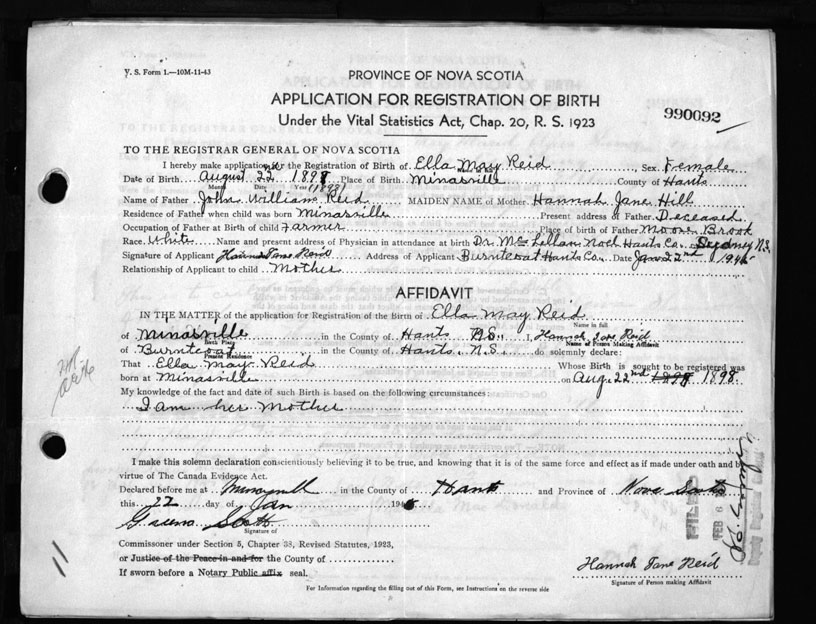 V. S. Form 1.—10M-11-43
PROVINCE OF NOVA SCOTIA
APPLICATION FOR REGISTRATION OF BIRTH
Under the Vital Statistics Act, Chap. 20, R. S. 1923
990092
TO THE REGISTRAR GENERAL OF NOVA SCOTIA
I hereby make application for the Registration of Birth of Ella May Reid Sex Female
Name in full
Date of Birth August 22nd 1898 Place of Birth Minasville County of Hants
Month Date Year (1898)
Name of Father John William Reid MAIDEN NAME of Mother Hannah Jane Hill
Residence of Father when child was born Minasville Present address of Father Deceased
Occupation of Father at Birth of child Farmer Place of birth of Father Moose Brook
Race White Name and present address of Physician in attendance at birth Dr. McLellan Noel Hants Co. Sydney N.S.
Signature of Applicant Hannah Jane Reid Address of Applicant Burntcoat Hants Co. Date Jan 22nd 194
Relationship of Applicant to child Mother
AFFIDAVIT
IN THE MATTER of the application for Registration of the Birth of Ella May Reid
Name in full
of Minasville in the County of Hants N.S. I, Hannah Jane Reid
Birth Place Name of Person Making Affidavit
of Burntcoat in the County of Hants. N.S. do solemnly declare:
Present Residence
That Ella May Reid Whose Birth is sought to be registered was
born at Minasville on Aug. 22nd 1898.
My knowledge of the fact and date of such Birth is based on the following circumstances:
I am her Mother
I make this solemn declaration conscientiously believing it to be true, and knowing that it is of the same force and effect as if made under oath and by
virtue of The Canada Evidence Act.
Declared before me at Minasville in the County of Hants and Province of Nova Scotia
this 22 day of Jan 194
Scott
Signature of
Commissioner under Section 5, Chapter 38, Revised Statutes, 1923,
or Justice of the Peace in and for the County of
If sworn before a Notary Public affix seal.
Hannah Jane Reid
Signature of Person making Affidavit
For Information regarding the filling out of this Form, see Instructions on the reverse side
FILED
FEB 6
11